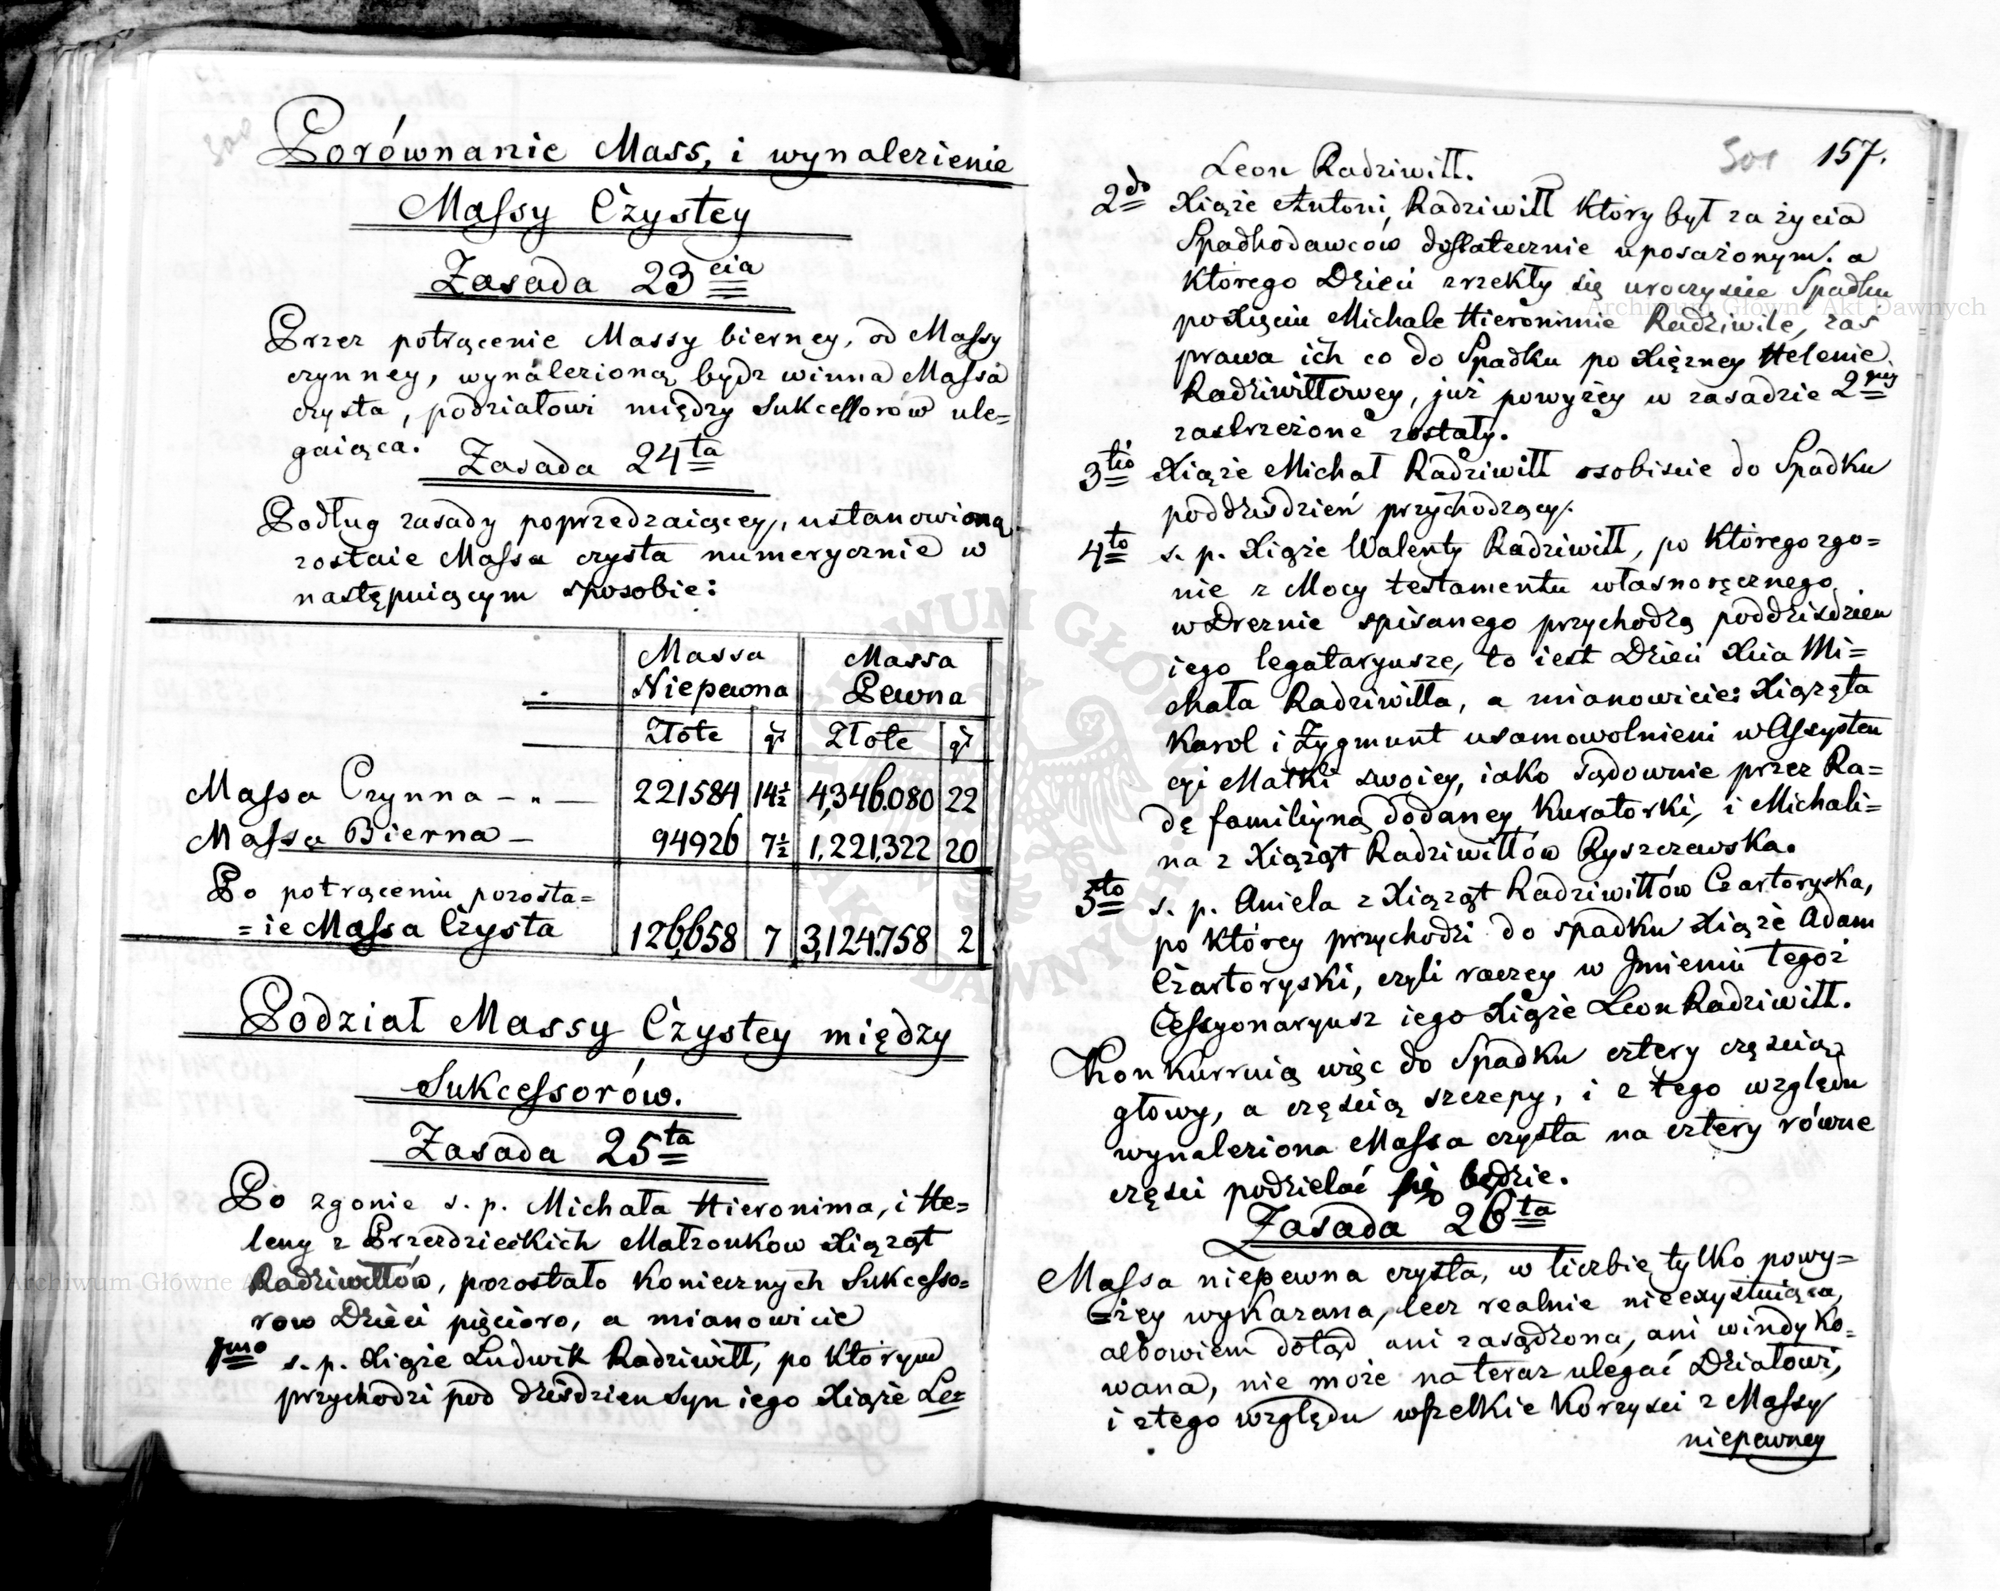 Porównanie Mass, i wynalezienie
Massy Czystey
Zasada 23cia
Przez potrącenie Massy bierney, od Massy
czynney, wynalezioną bydz winna Massa
czysta, podziałowi między Sukcessorów ule=
gaiąca.
Zasada 24ta
Podług zasady poprzedzaiącey, ustanowioną
zostaie Massa czysta numerycznie w
następuiącym sposobie:
Massa Niepewna Massa Pewna
Złote gr Złote gr
Massa Czynna - „ — 221584 14½ 4,346.080 22
Massa Bierna — 94926 7½ 1,221,322 20
Po potrąceniu pozosta=
=ie Massa Czysta 126658 7 3,124.758 2
Podział Massy Czystey między
Sukcessorów.
Zasada 25ta
Po zgonie s. p. Michała Hieronima, i He=
leny z Przezdzieckich Małżonków Xiążąt
Radziwiłłów, pozostało koniecznych Sukcesso=
row Dzieci pięcioro, a mianowicie
1mo s. p. Xiąże Ludwik Radziwiłł, po którym
przychodzi pod dziśdzien syn iego Xiąże Le=
301 157.
Leon Radziwiłł.
2do Xiąże Antoni Radziwiłł który był za życia
Spadkodawców dostatecznie uposażonym. a
którego Dzieci zrzekły się uroczyscie Spadku
po Xięciu Michale Hieronimie Radziwile, zas
prawa ich co do Spadku po Xiężney Helenie
Radziwiłłowey, już powyżey w zasadzie 2giey
zastrzeżone zostały.
3tio Xiąże Michał Radziwiłł osobiscie do Spadku
poddziśdzień przychodzący.
4to s. p. Xiąże Walenty Radziwiłł, po którego zgo=
nie z Mocy testamentu własnoręcznego
w Dreznie spisanego przychodzą poddziśdzien
iego legataryusze, to iest Dzieci Xcia Mi=
chała Radziwiłła, a mianowicie: Xiążęta
Karol i Zygmunt usamowolnieni w Assysten
cyi Matki swoiey, iako Sądownie przez Ra=
dę familiyną dodaney Kuratorki, i Michali=
na z Xiążąt Radziwiłłów Ryszczewska.
5to s. p. Aniela z Xiążąt Radziwiłłów Czartoryska,
po którey przychodzi do spadku Xiąże Adam
Czartoryski, czyli raczey w Jmieniu tegoż
Cessyonaryusz iego Xiąże Leon Radziwiłł.
Konkurruią więc do Spadku cztery częscią
głowy, a częscią szczepy, i z tego względu
wynaleziona Massa czysta na cztery równe
częsci podzielać się będzie.
Zasada 26ta
Massa niepewna czysta, w liczbie tylko powy=
=żey wykazana, lecz realnie nieexystuiąca,
albowiem dotąd ani zasądzona, ani windyko=
wana, nie może na teraz ulegać Działowi,
i z tego względu wszelkie korzysci z Massy
niepewney